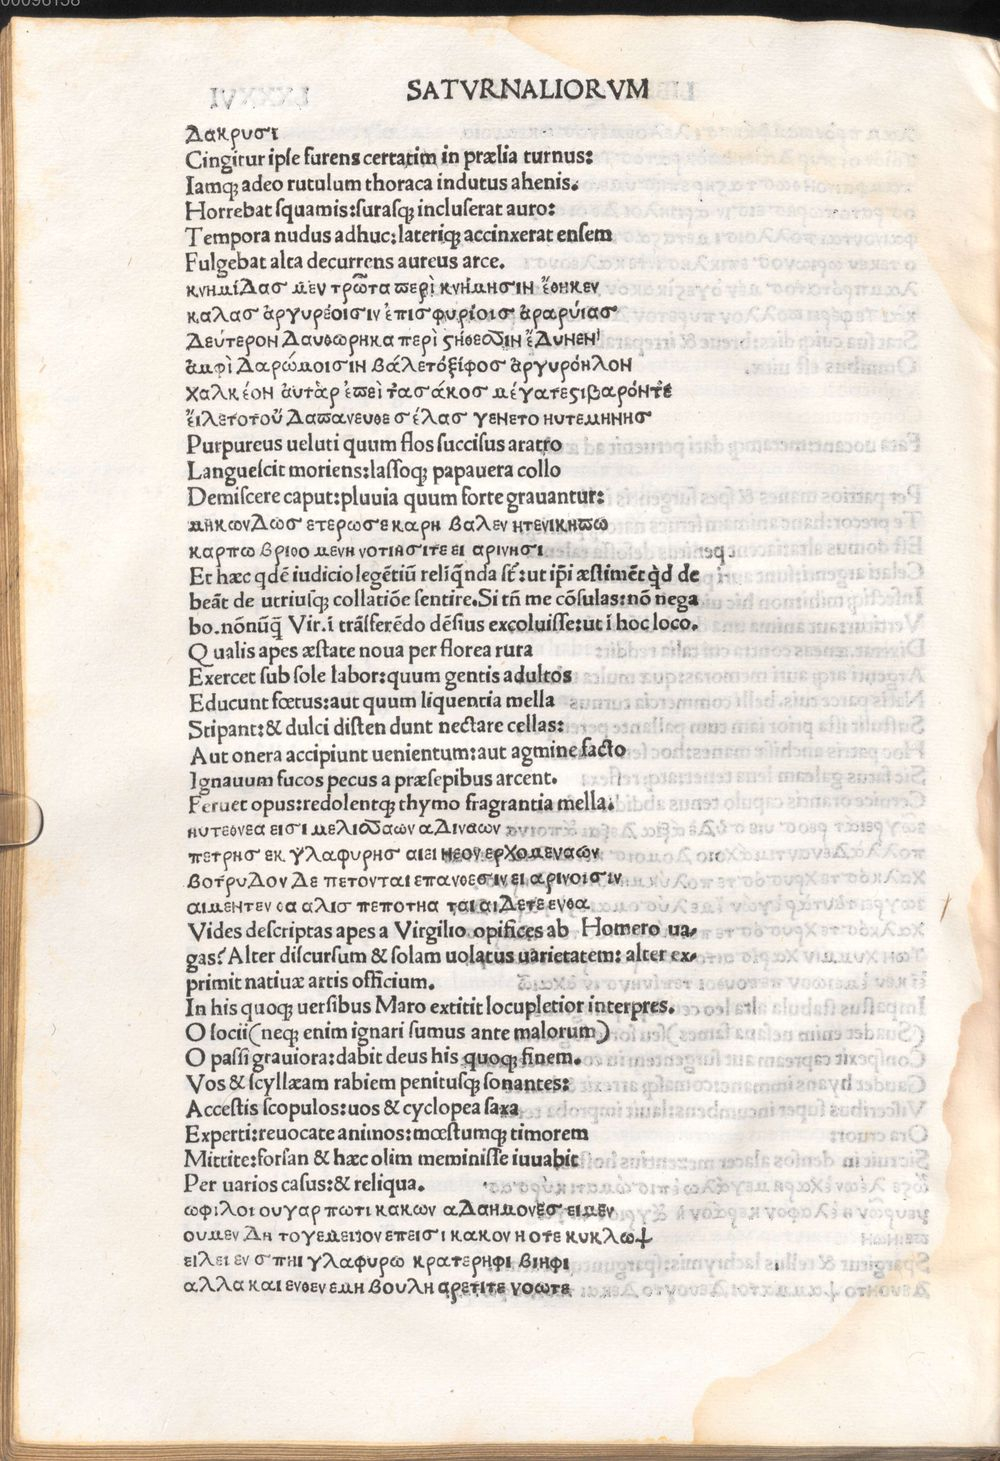 SATVRNALIORVM
Δακρυσι
Cingitur ipse furens certatim in prælia turnus:
Iamq; adeo rutulum thoraca indutus ahenis.
Horrebat squamis:surasq; incluserat auro:
Tempora nudus adhuc:lateriq; accinxerat ensem
Fulgebat alta decurrens aureus arce.
κνημίδασ μεν τρῶτα περὶ κνήμησιν ἔθηκεν
καλασ ἀργυρέοισιν ἐπισφυρίοισ ἀραρύιασ
Δεύτερον δαυθωρηκα περὶ ςήθεσσιν ἔδυνεν
ἀμφὶ δαρώμοισιν βάλετόξίφοσ ἀργυρόηλον
χαλκέον ἀυτὰρ ἐπεὶ τασάκοσ μέγατεςιβαρόντε
ἔιλετοτοῦ δαπανευθε σέλασ γενετο ηυτεμηνησ
Purpureus ueluti quum flos succisus aratro
Languescit moriens:lassoq; papauera collo
Demiscere caput:pluuia quum forte grauantur:
μήκωνδωσ ετερωσε καρη βαλεν ητενικηπω
καρπω βριθομενη νοτιησιτε ειαρινησι
Et hæc qdē iudicio legētiū reliq̄nda sī:ut ip̄i æstimēt q̄d de
beāt de utriusq; collatiōe sentire.Si tn̄ me cōsulas:nō nega
bo.nōnūq̄ Vir.ī trāsferēdo dēsius excoluisse:ut ī hoc loco.
Qualis apes æstate noua per florea rura
Exercet sub sole labor:quum gentis adultos
Educunt fœtus:aut quum liquentia mella
Stipant:& dulci disten dunt nectare cellas:
Aut onera accipiunt uenientum:aut agmine facto
Ignauum fucos pecus a præsepibus arcent.
Feruet opus:redolentq; thymo fragrantia mella.
ηυτεθνεα εισι μελισσαων αδιναων
πετρησ εκ γλαφυρησ αιει νεον ερχομεναων
βοτρυδον δε πετονται επανθεσιν ειαρινοισιν
αιμεντενθα αλισ πεποτηαται αιδετε ενθα
Vides descriptas apes a Virgilio opifices ab Homero ua-
gas? Alter discursum & solam uolatus uarietatem: alter ex-
primit natiuæ artis officium.
In his quoq; uersibus Maro extitit locupletior interpres.
O socii(neq; enim ignari sumus ante malorum)
O passi grauiora:dabit deus his quoq; finem.
Vos & scyllæam rabiem penitusq; sonantes:
Accestis scopulos:uos & cyclopea saxa
Experti:reuocate animos:mœstumq; timorem
Mittite:forsan & hæc olim meminisse iuuabit
Per uarios casus:& reliqua.
ωφιλοι ουγαρ πωτι κακων αδαημονεσ ειμεν
ουμεν δη τογεμειζον επεισι κακον η οτε κυκλωψ
ειλει εν σπηι γλαφυρω κρατερηφι βιηφι
αλλα και ενθεν εμη βουλη αρετιτε νοωτε